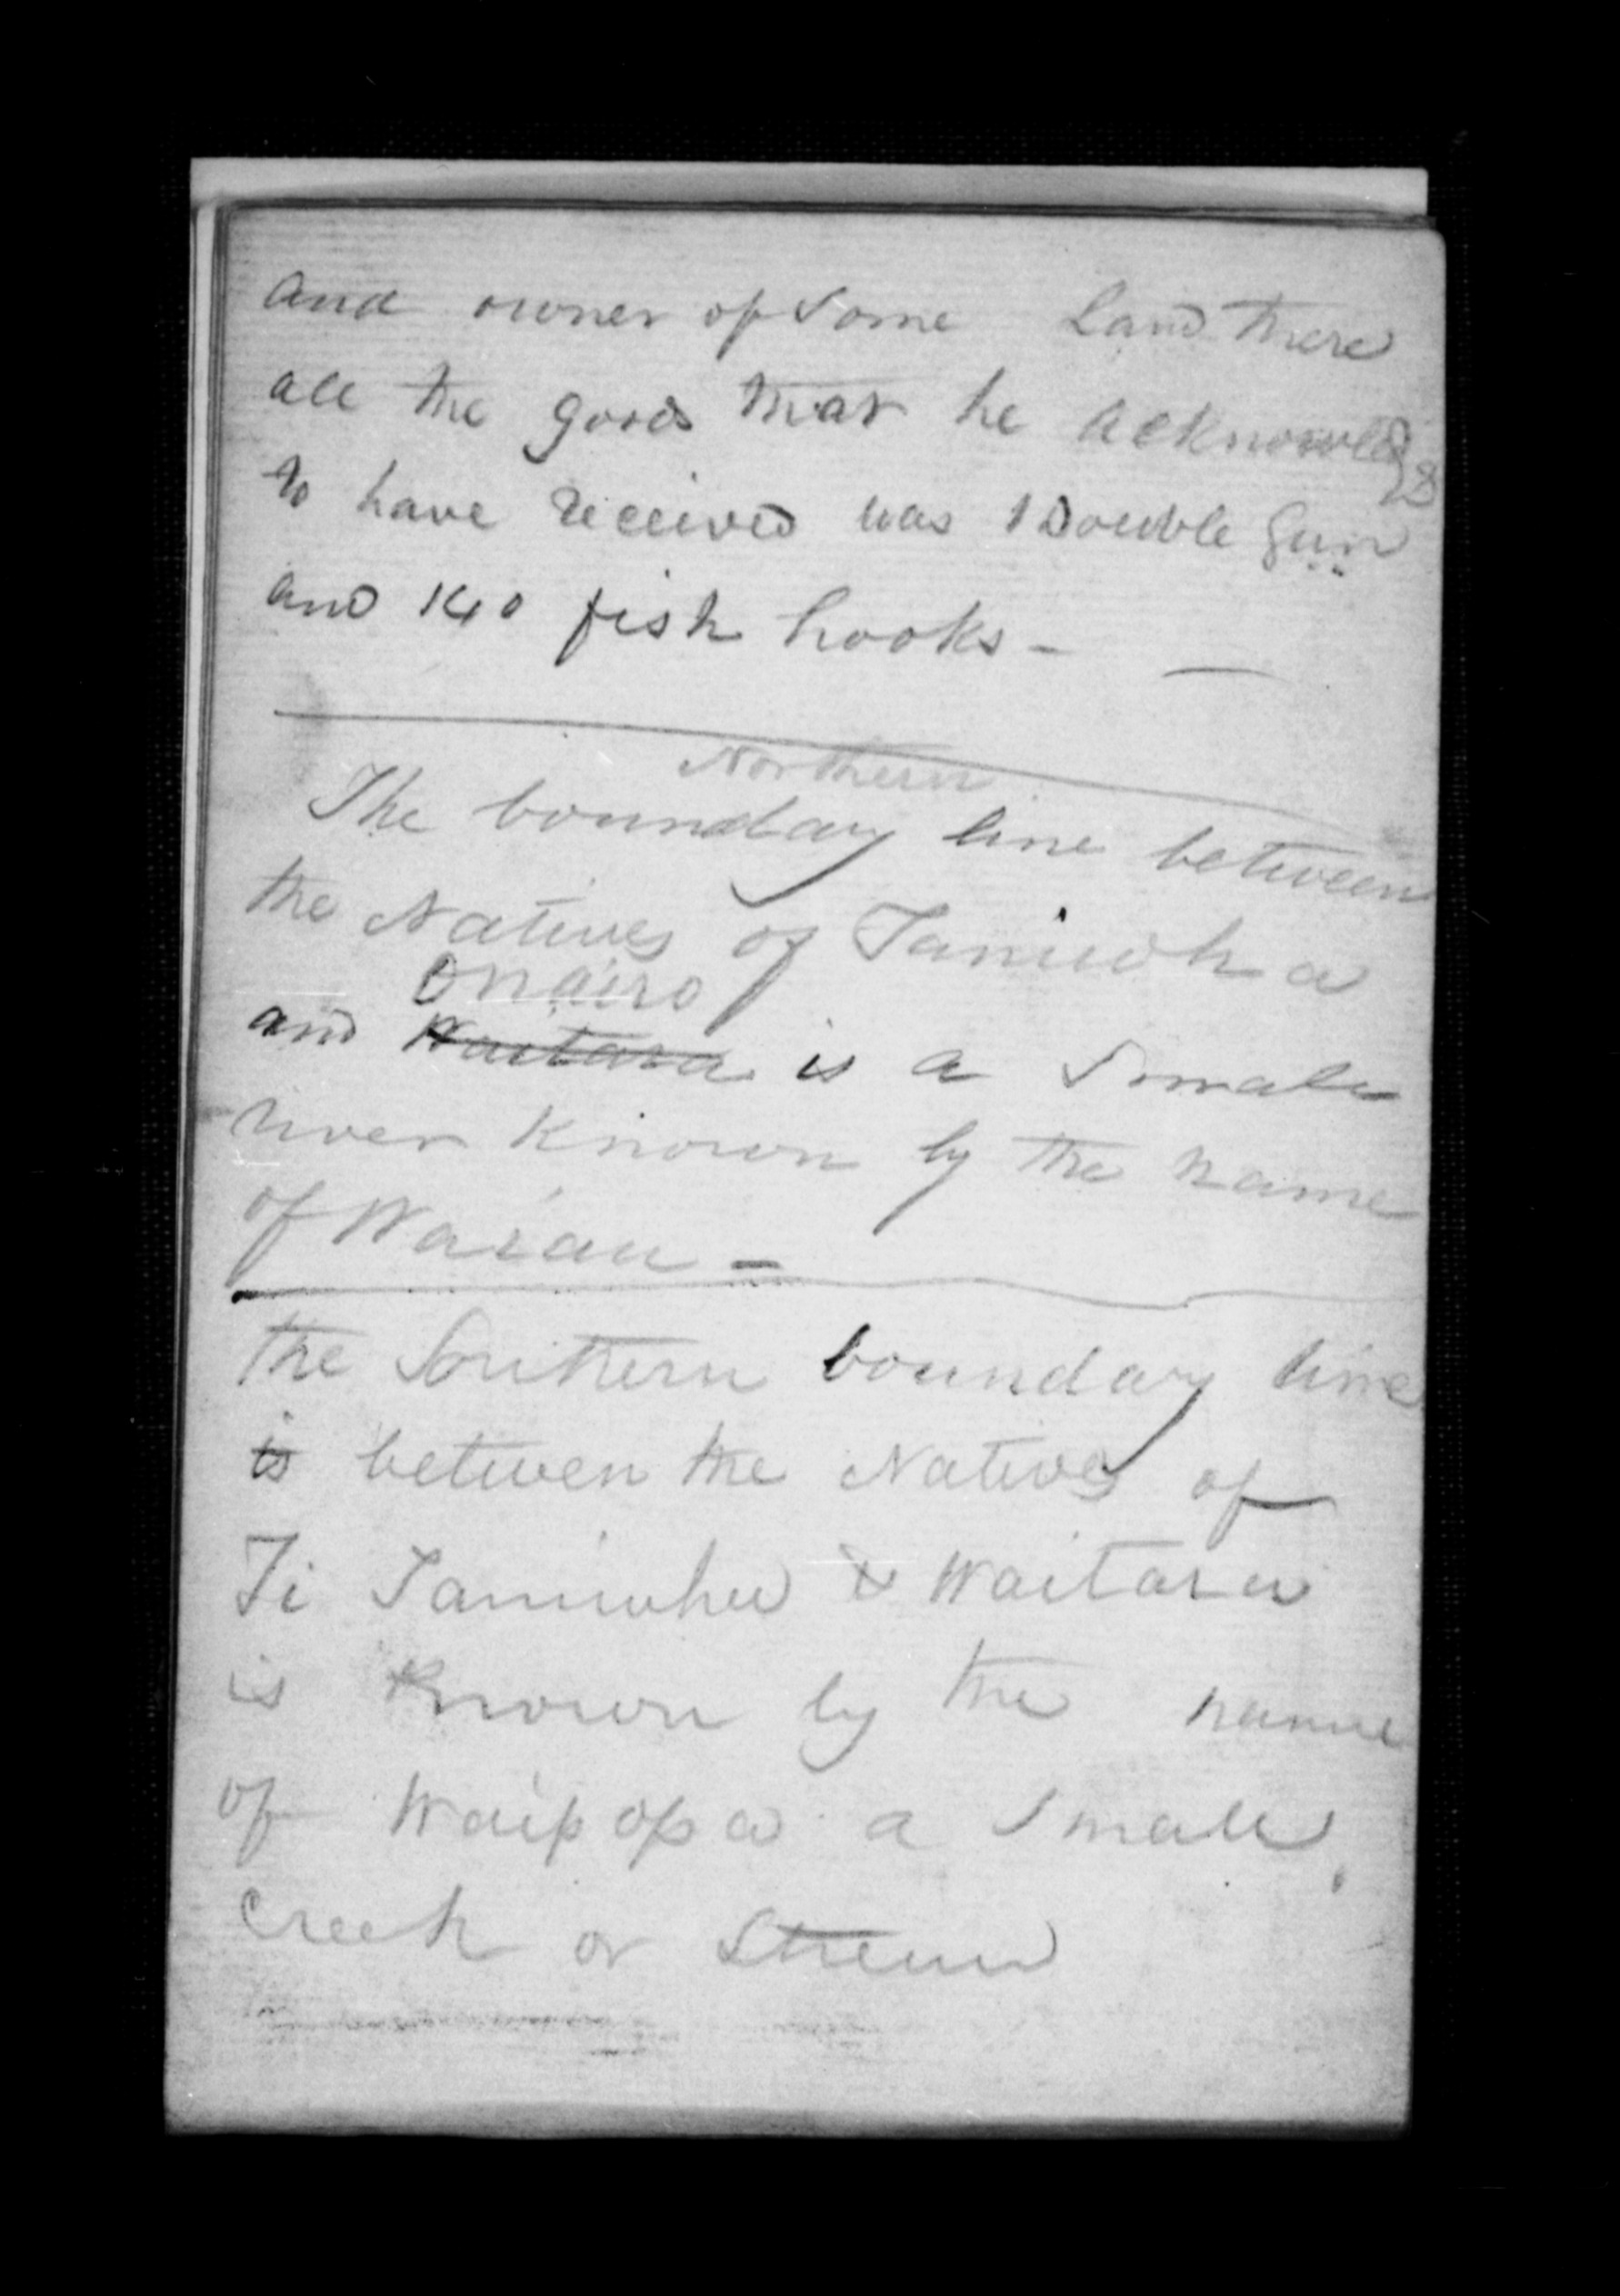 and owner of Some Land there
all the goods that he acknowledgd
to have received was 1 Double Gun
and 140 fish hooks -
Northern
The boundary line between
the Natives of Taniwha
Onairo
and Waitara is a Small
river known by the name
of Warau -
the Southern boundary line
is between the Natives of
Ti Taniwha & Waitara
is Known by the name
of Waipopa a Small
Creek or Stream